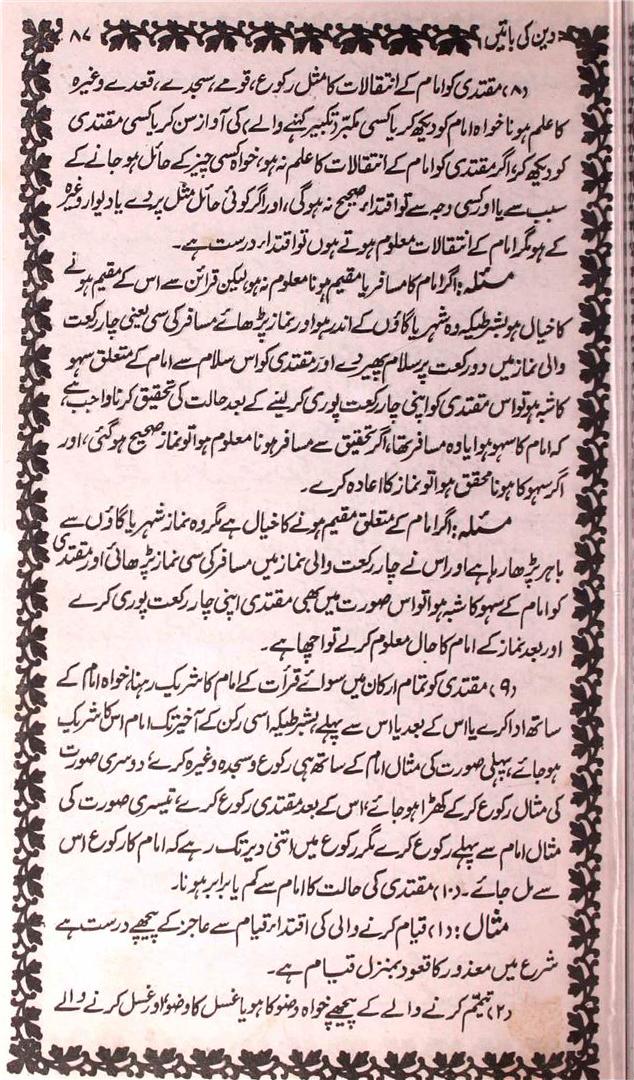 دین کی باتیں ۸۷
(۸) مقتدی کو امام کے انتقالات کا مثل رکوع، قومے، سجدے، قعدے وغیرہ
کا علم ہونا خواہ امام کو دیکھ کر یا کسی مکبر (تکبیر کہنے والے) کی آواز سن کر یا کسی مقتدی
کو دیکھ کر، اگر مقتدی کو امام کے انتقالات کا علم نہ ہو، خواہ کسی چیز کے حائل ہو جانے کے
سبب سے یا اور کسی وجہ سے تو اقتداء صحیح نہ ہوگی، اور اگر کوئی حائل مثل پردے یا دیوار وغیرہ
کے ہو مگر امام کے انتقالات معلوم ہوتے ہوں تو اقتداء درست ہے۔
مسئلہ: اگر امام کا مسافر یا مقیم ہونا معلوم نہ ہو، لیکن قرائن سے اس کے مقیم ہونے
کا خیال ہو بشرطیکہ وہ شہر یا گاؤں کے اندر ہو اور نماز پڑھائے مسافر کی سی یعنی چار رکعت
والی نماز میں دو رکعت پر سلام پھیر دے اور مقتدی کو اس سلام سے امام کے متعلق سہو
کا شبہ ہو تو اس مقتدی کو اپنی چار رکعت پوری کر لینے کے بعد حالت کی تحقیق کرنا واجب ہے،
کہ امام کا سہو ہوا یا وہ مسافر تھا، اگر تحقیق سے مسافر ہونا معلوم ہوا تو نماز صحیح ہوگئی، اور
اگر سہو کا ہونا محقق ہوا تو نماز کا اعادہ کرے۔
مسئلہ: اگر امام کے متعلق مقیم ہونے کا خیال ہے مگر وہ نماز شہر یا گاؤں سے
باہر پڑھا رہا ہے اور اس نے چار رکعت والی نماز میں مسافر کی سی نماز پڑھائی اور مقتدی
کو امام کے سہو کا شبہ ہوا تو اس صورت میں بھی مقتدی اپنی چار رکعت پوری کرے
اور بعد نماز کے امام کا حال معلوم کرلے تو اچھا ہے۔
(۹) مقتدی کو تمام ارکان میں سوائے قرأت کے امام کا شریک رہنا، خواہ امام کے
ساتھ ادا کرے یا اس کے بعد یا اس سے پہلے بشرطیکہ اسی رکن کے آخیر تک امام اس کا شریک
ہو جائے، پہلی صورت کی مثال امام کے ساتھ ہی رکوع و سجدہ وغیرہ کرے، دوسری صورت
کی مثال رکوع کرکے کھڑا ہو جائے، اس کے بعد مقتدی رکوع کرے، تیسری صورت کی
مثال امام سے پہلے رکوع کرے مگر رکوع میں اتنی دیر تک رہے کہ امام کا رکوع اس
سے مل جائے۔ (۱۰) مقتدی کی حالت کا امام سے کم یا برابر ہونا۔
مثال: (۱) قیام کرنے والی کی اقتداء قیام سے عاجز کے پیچھے درست ہے
شرع میں معذور کا قعود بمنزل قیام ہے۔
(۲) تیمّم کرنے والے کے پیچھے خواہ وضو کا ہو یا غسل کا وضو اور غسل کرنے والے